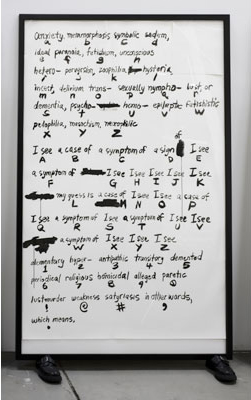 anxiety, metamorphosis symbolic sadism,
a b c d
ideal paranoia, fetichism, unconscious
e f g h
hetero- perversion, zoophilia hysteria,
i j k l
incest, delirium trans- sexually nympho- lust, or
m n o p q r
dementia, psycho- homo- epileptic fetishistic
s t u v w
pedophilia, masochism, necrophilic
x y z
of
I see a case of a symptom of a sign I see
A B C D E
a symptom of I see I see I see I see
F G H I J K
my guess is a case of I see I see a case of
L M N O P
I see a symptom of I see a symptom of I see
Q R S T U V
a symptom of I see I see I see
W X Y Z
elementary hyper- antipathic transitory demented
1 2 3 4 5
periodical religious homicidal alleged paretic
6 7 8 9 0
lustmurder weakness satyriasis in other words,
! @ # ,
which means,
.